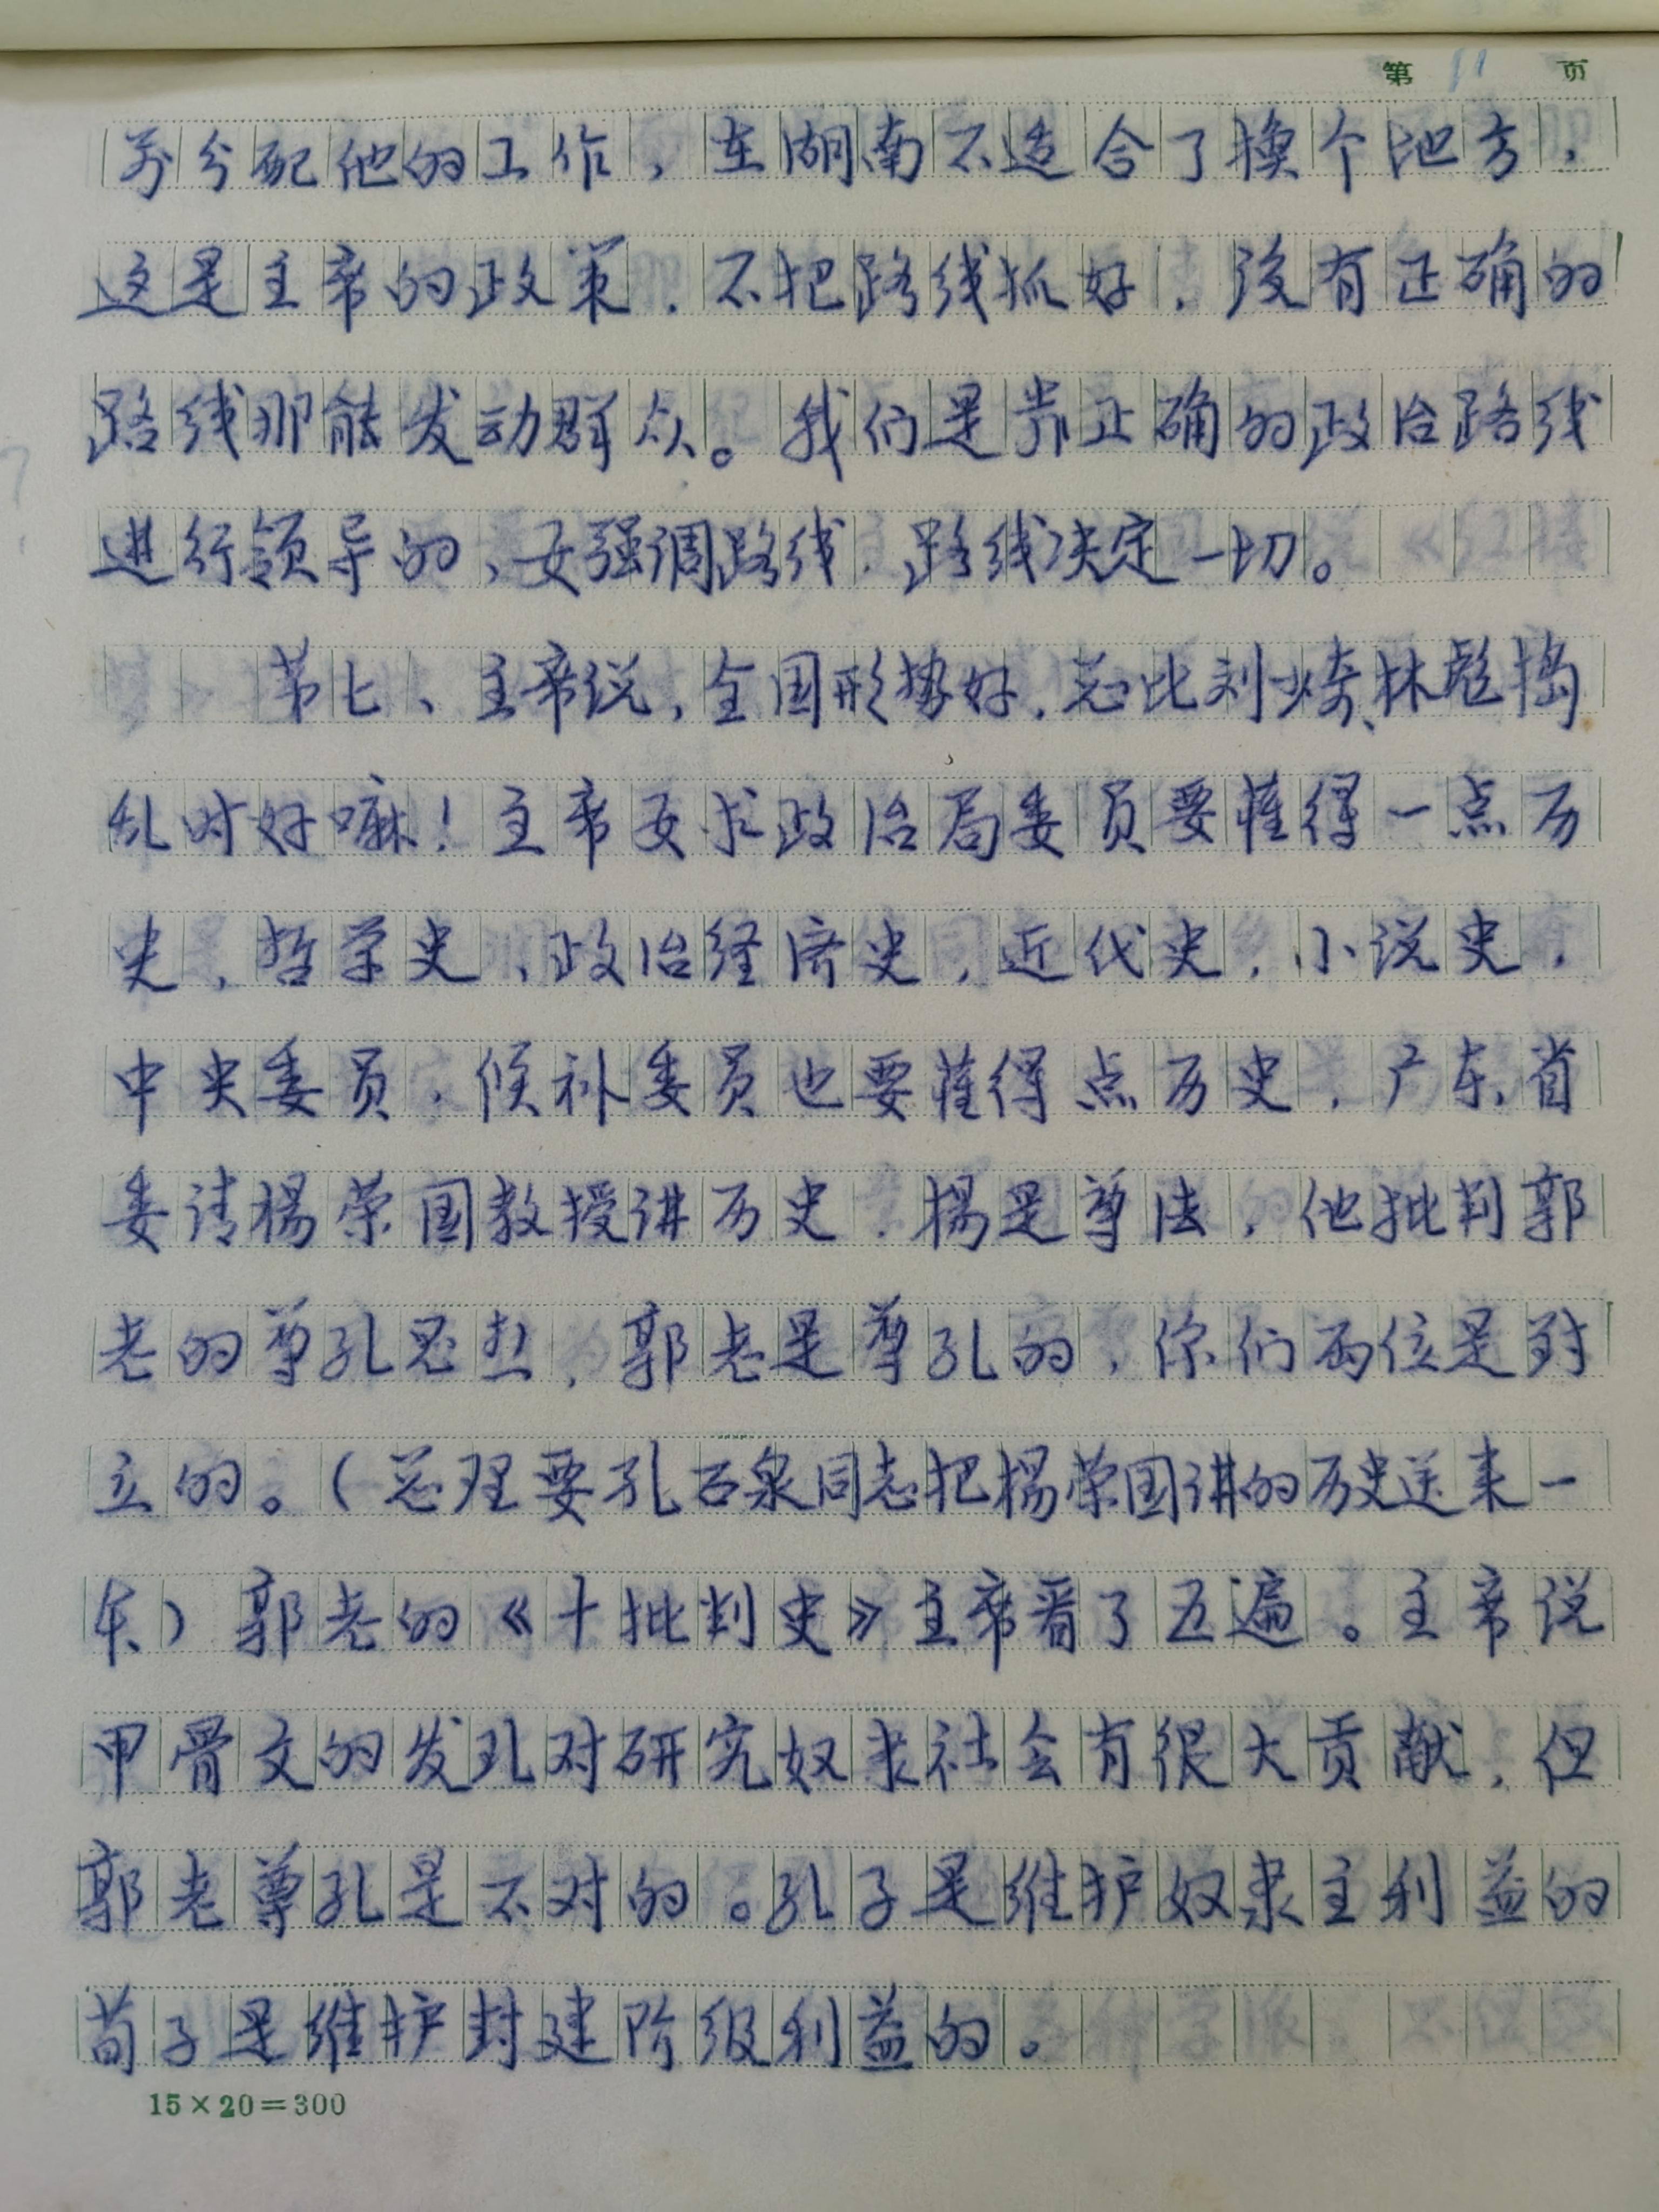 第 11 页
分配他的工作，在湖南不适合了换个地方，
这是主席的政策，不把路线抓好，没有正确的
路线那能发动群众。我们是靠正确的政治路线
进行领导的，要强调路线，路线决定一切。
第七、主席说，全国形势好，总比刘少奇、林彪捣
乱时好嘛！主席要求政治局委员要懂得一点历
史，哲学史，政治经济史，近代史，小说史，
中央委员，候补委员也要懂得点历史，广东省
委请杨荣国教授讲历史，杨是尊法，他批判郭
老的尊孔思想，郭老是尊孔的，你们两位是对
立的。（总理要孔石泉同志把杨荣国讲的历史送来一
份）郭老的《十批判史》主席看了五遍。主席说
甲骨文的发孔对研究奴隶社会有很大贡献，但
郭老尊孔是不对的。孔子是维护奴隶主利益的
荀子是维护封建阶级利益的。
15×20=300